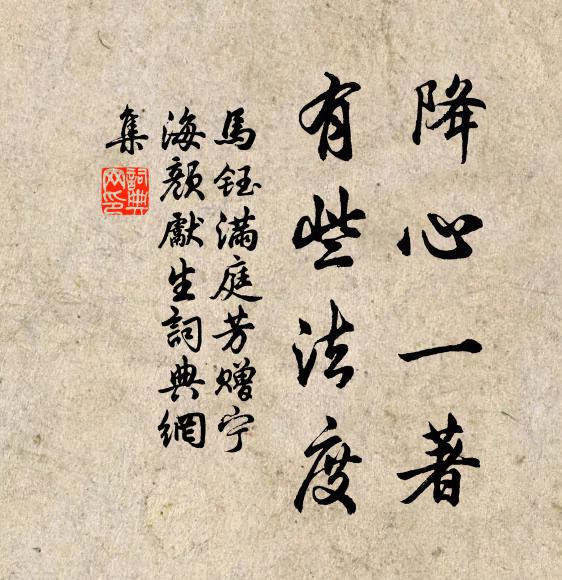 降心一著
有些法度
馬鈺滿庭芳赠宁
海顏獻生詞典網
集
詞典网印